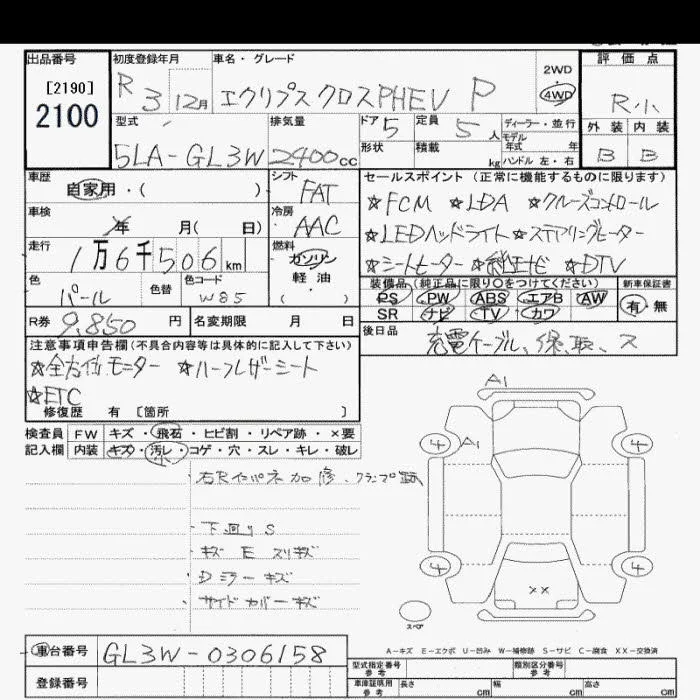 出品番号
[2190]
2100
初度登録年月
R 3 12月
車名・グレード
エクリプスクロスPHEV P
2WD
4WD
評価点
R小
型式
5LA-GL3W
排気量
2400cc
ドア 5
定員 5人
形状
積載 kg
ディーラー・並行
モデル年式 年
ハンドル 左・右
外装 内装
B B
車歴
自家用・( )
シフト
FAT
セールスポイント(正常に機能するものに限ります)
☆FCM ☆LDA ☆クルーズコントロール
☆LEDヘッドライト ☆ステアリングヒーター
☆シートヒーター ☆純正ナビ ☆DTV
車検
年 月( 日)
冷房
AAC
走行
1万6千506km
燃料
ガソリン
軽油
( )
色
パール
色替
色コード
W85
装備品(純正品に限り○をつけてください)
PS PW ABS エアB AW
SR ナビ TV カワ
新車保証書
有・無
R券 9,850円
名変期限 月 日
後日品
充電ケーブル、保、取、ス
注意事項申告欄(不具合内容等は具体的に記入して下さい)
☆全方位モニター ☆ハーフレザーシート
☆ETC
修復歴 有 [箇所 ]
検査員 FW キズ・飛石・ヒビ割・リペア跡・×要
記入欄 内装 キズ・汚レ・コゲ・穴・スレ・キレ・破レ
・右Rインパネ加修、クランプ跡
・下廻りS
・キズ E スリキズ
・Dミラーキズ
・サイドカバーキズ
A1
4 A1 4
4 4
××
スペア
A-キズ E-エクボ U-凹み W-補修跡 S-サビ C-腐食 XX-交換済
車台番号 GL3W-0306158
登録番号
型式指定番号 参考
類別区分番号 参考
車庫証明用 参考
長さ cm 幅 cm 高さ cm